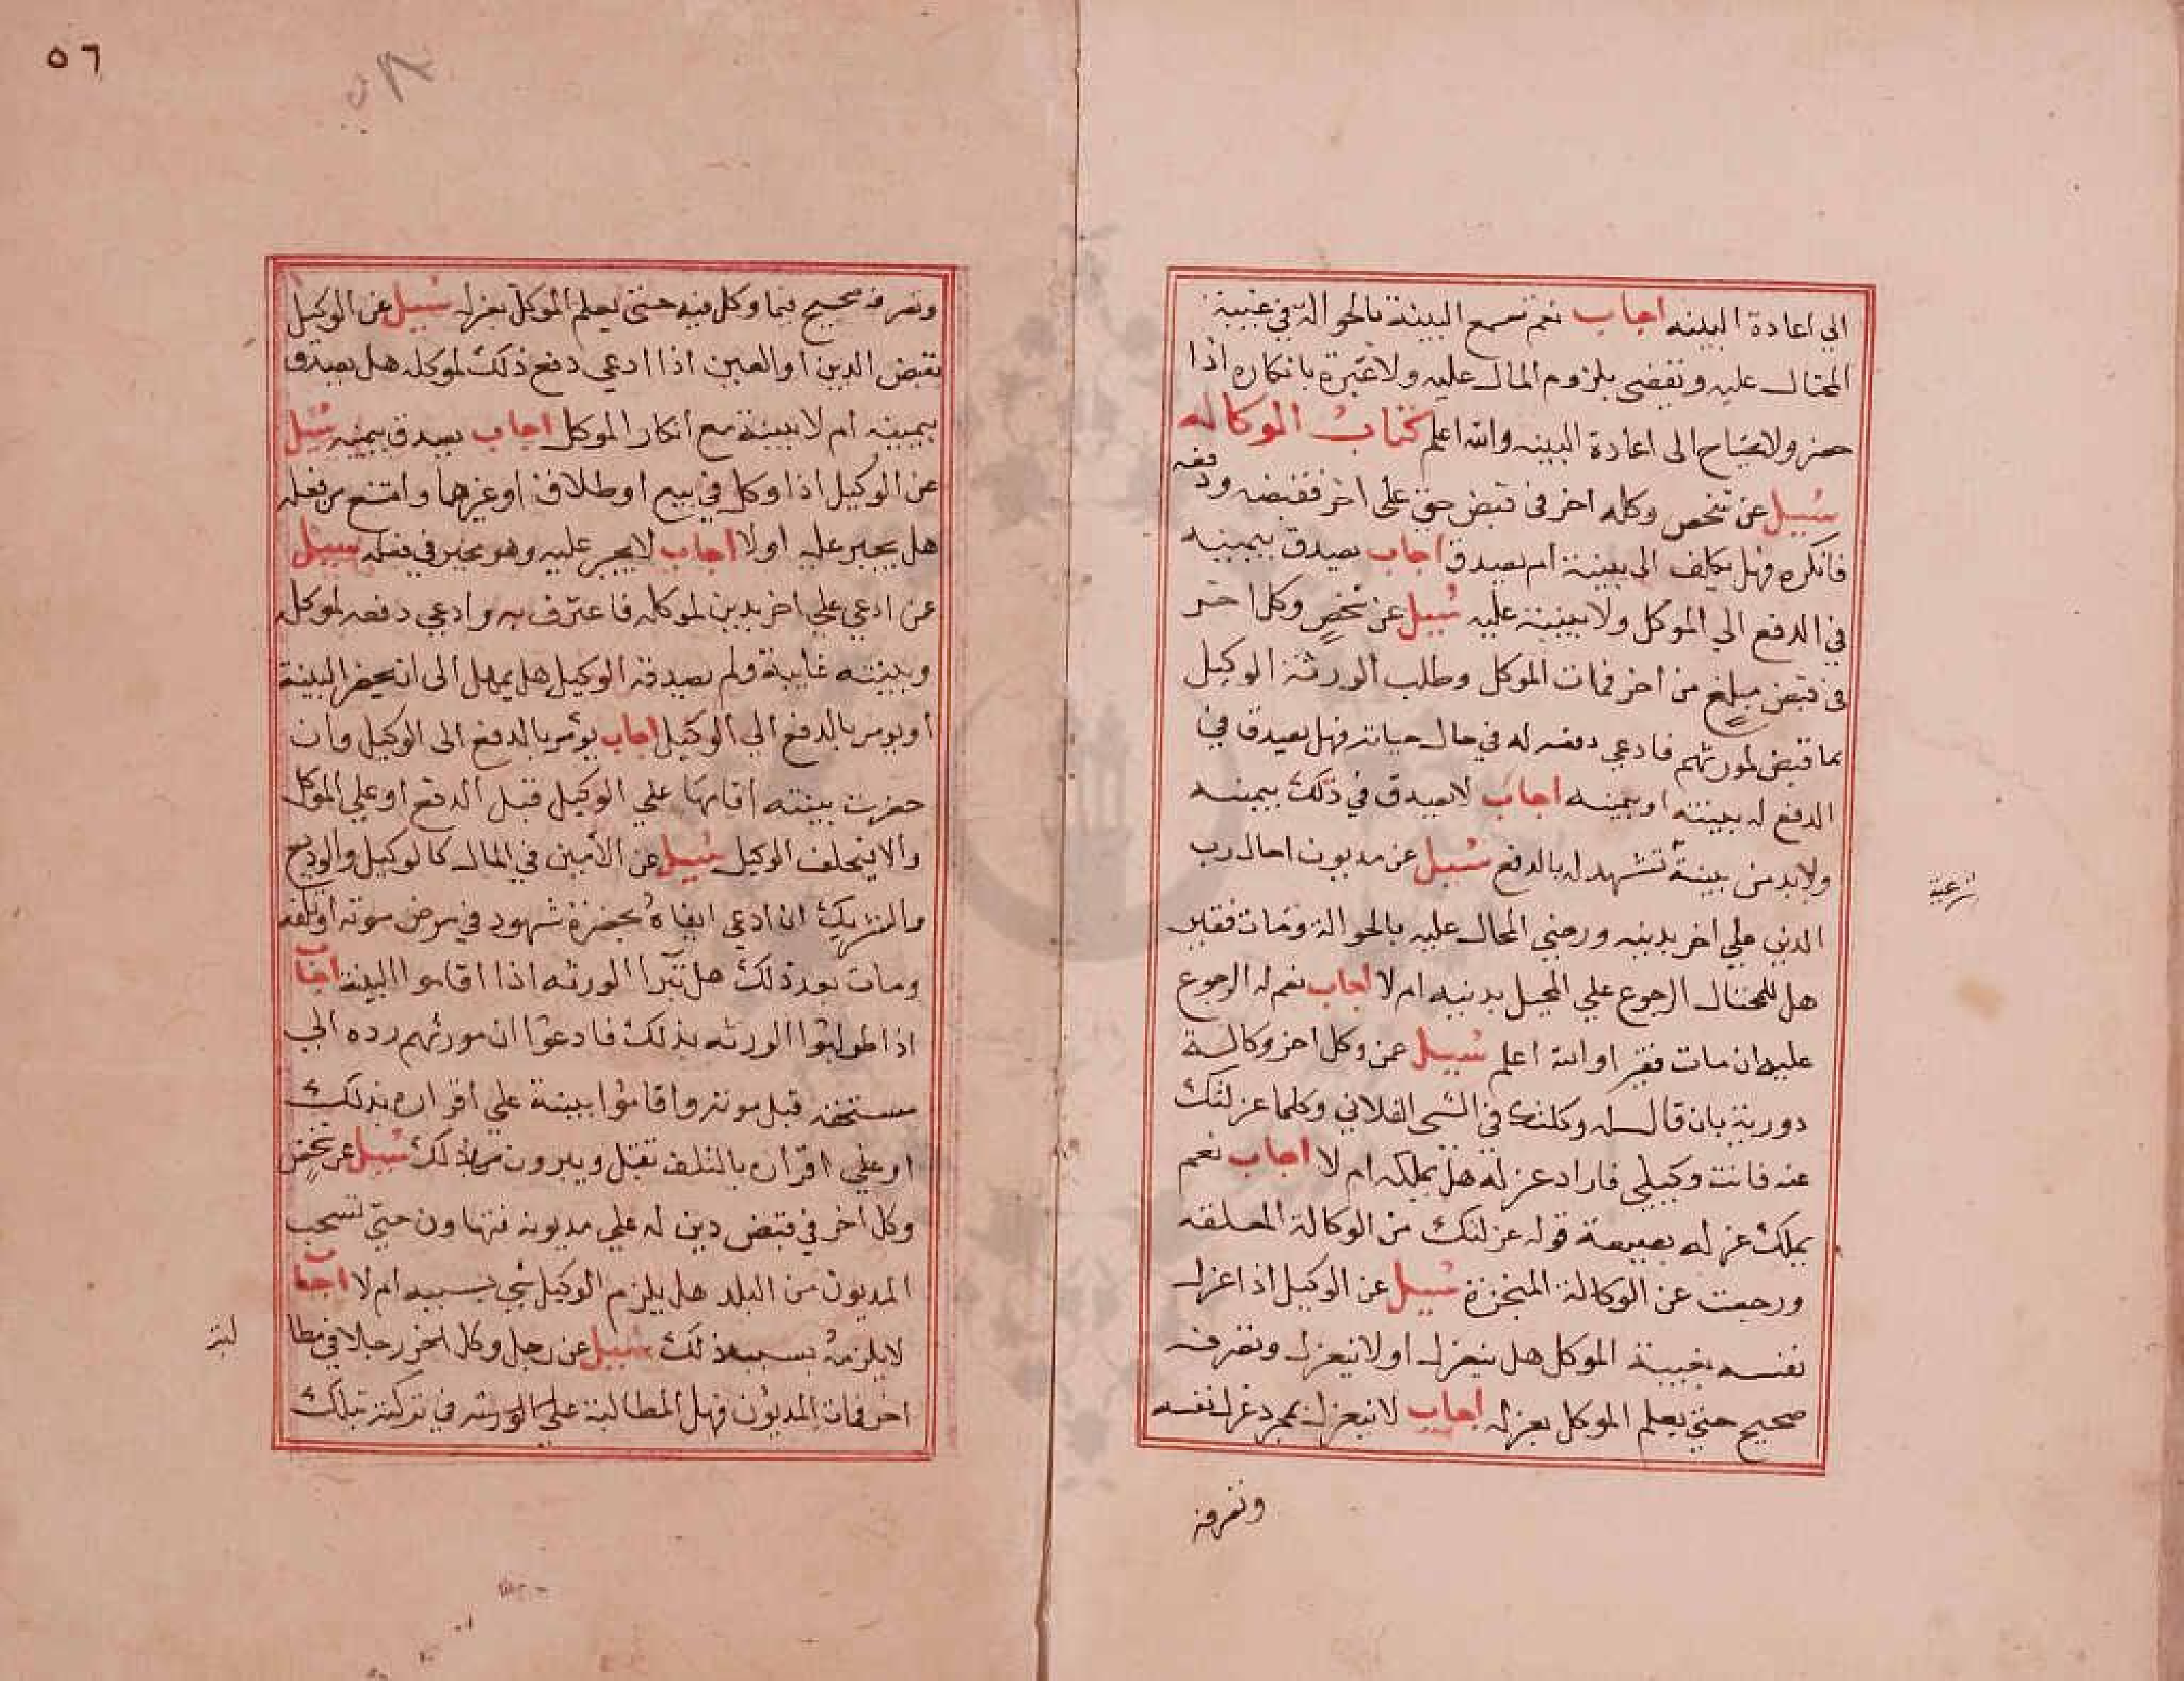 الي اعادة البينه اجاب نعم تسمع البينة بالحوالة في غيبة
المحتال عليه ونقضي بلزوم المال عليه ولا عبرة بانكاره اذا
حضر ولا يحتاج الى اعادة البينه والله اعلم كتاب الوكاله
سيل عن شخص وكله اخر في قبض حق على اخر فقبضه ودفعه
فانكره فهل يكلف الى بينة ام يصدق اجاب يصدق بيمينه
في الدفع الي الموكل ولا بينة عليه سيل عن شخص وكل اخر
في قبض مبلغ من اخر فمات الموكل وطلب الورثة الوكيل
بما قبض لمورثهم فادعي دفعه له في حال حياته فهل يصدق في
الدفع له ببينته او بيمينه اجاب لا يصدق في ذلك بيمينه
ولا بد من بينة تشهد له بالدفع سيل عن مديون احال رب
الدين علي اخر بدينه ورضي المحال عليه بالحوالة ومات فقير
هل للمحتال الرجوع علي المحيل بدينه ام لا اجاب نعم له الرجوع
عليه ان مات فقيرا والله اعلم سيل عمن وكل اخر وكالة
دورية بان قال له وكلتك في الشي الفلاني وكلما عزلتك
عنه فانت وكيلي فاراد عزله هل يملكه ام لا اجاب نعم
يملك عزله بصيغة قوله عزلتك من الوكالة المعلقه
ورجعت عن الوكالة المنجزة سيل عن الوكيل اذا عزل
نفسه بغيبة الموكل هل ينعزل او لا ينعزل وتصرفه
صحيح حتي يعلم الموكل بعزله اجاب لا ينعزل بمجرد عزله نفسه
وتصرفه
٥٦
وتصرفه صحيح فيما وكل فيه حتي يعلم الموكل بعزله سيل عن الوكيل
بقبض الدين او العين اذا ادعي دفع ذلك لموكله هل يصدق
بيمينه ام لا ببينة مع انكار الموكل اجاب يصدق بيمينه سيل
عن الوكيل اذا وكل في بيع او طلاق او غيرهما وامتنع من فعله
هل يجبر عليه او لا اجاب لا يجبر عليه وهو مخير في فعله سيل
عن ادعي علي اخر بدين لموكله فاعترف به وادعي دفعه لموكله
وبينته غايبة ولم يصدقه الوكيل هل يمهل الى ان يحضر البينة
او يومر بالدفع الي الوكيل اجاب يومر بالدفع الى الوكيل وان
حضرت بينته اقامها علي الوكيل قبل الدفع او علي الموكل
والا يحلف الوكيل سيل عن الأمين في المال كالوكيل والوديع
والشريك ان ادعي ايفاه بحضرة شهود في مرض موته او تلفه
ومات بعد ذلك هل تبرا الورثه اذا اقاموا البينة اجاب
اذا طولبوا الورثه بذلك فادعوا ان مورثهم رده الي
مستحقه قبل موته واقاموا بينة علي اقراره بذلك
او علي اقراره بالتلف تقبل ويبرون من ذلك سيل عن شخص
وكل اخر في قبض دين له علي مديونه فتهاون حتي تسحب
المديون من البلد هل يلزم الوكيل شي بسببه ام لا اجاب
لا يلزمه بسبب ذلك سيل عن رجل وكل اخر رجلا في مطا
لبة
اخر فمات المديون فهل المطالبة علي الورثه في تركته بتلك